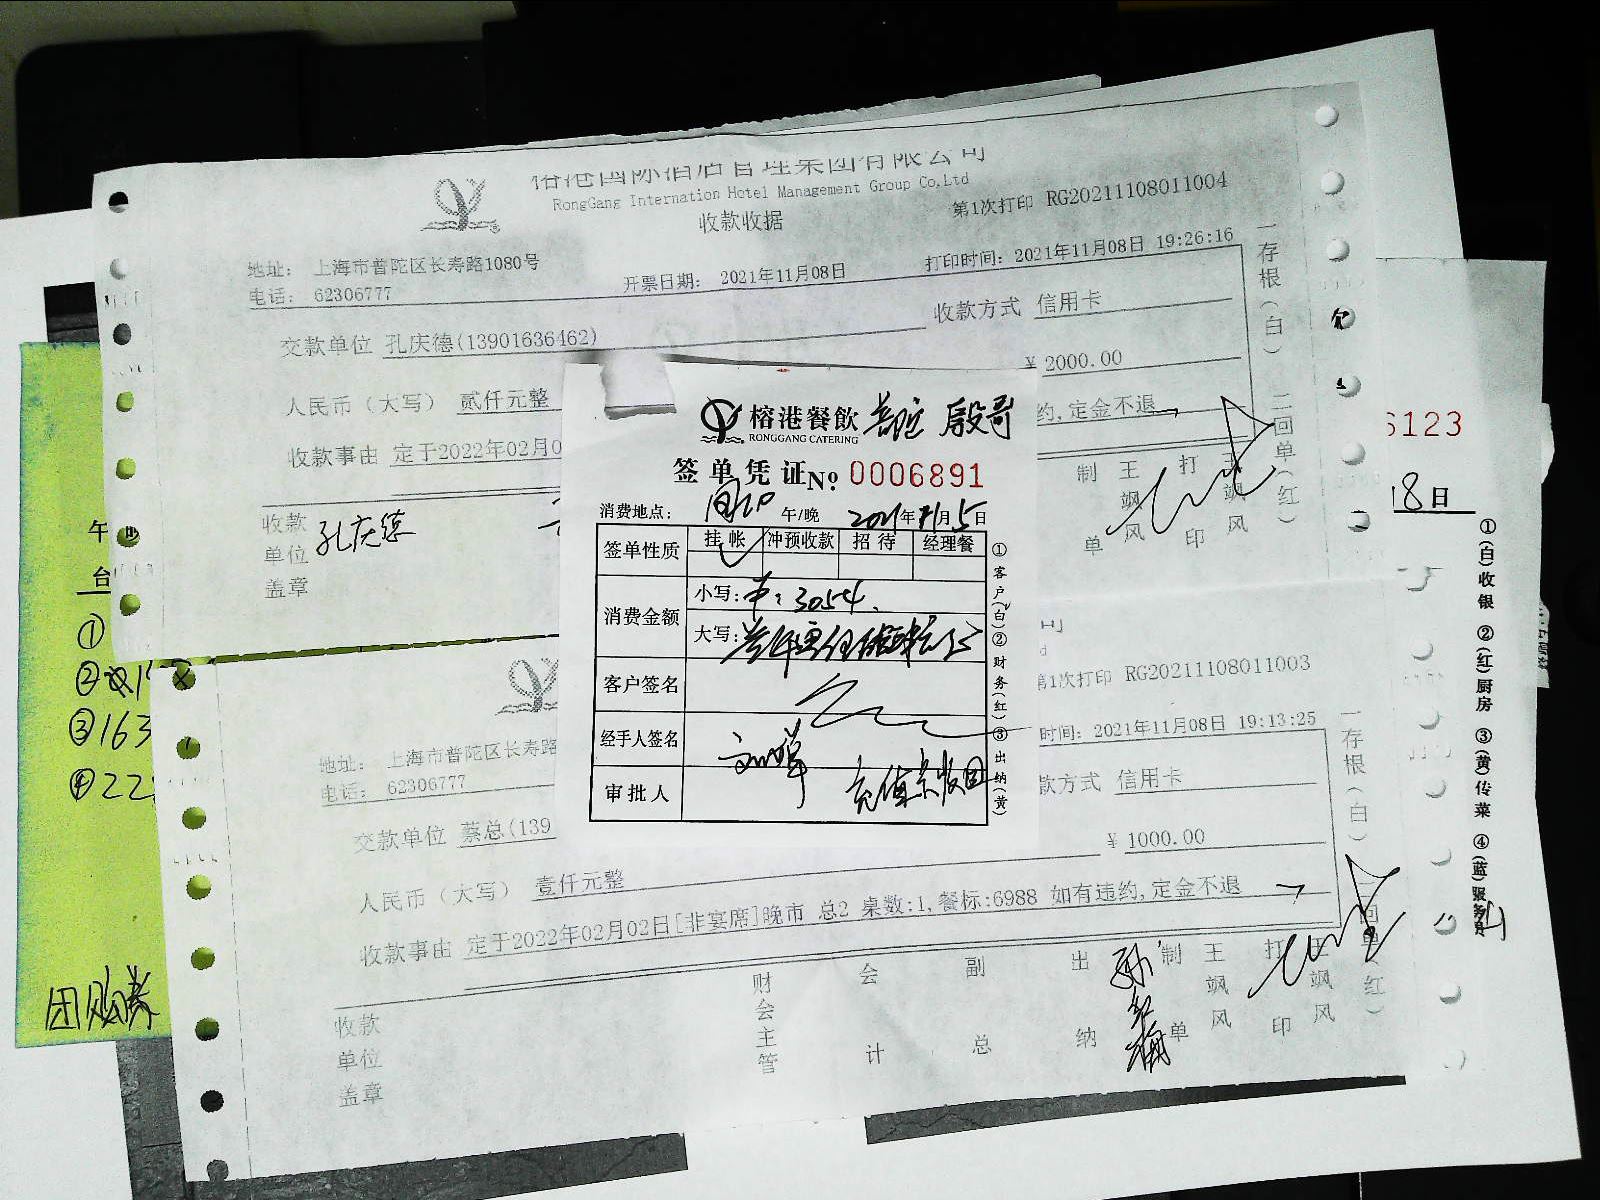 榕港国际酒店管理集团有限公司
RongGang Internation Hotel Management Group Co.Ltd
收款收据
第1次打印 RG20211108011004
地址： 上海市普陀区长寿路1080号
电话： 62306777
开票日期： 2021年11月08日
打印时间：2021年11月08日 19:26:16
交款单位 孔庆德(13901636462)
收款方式 信用卡
人民币（大写） 贰仟元整
¥ 2000.00
收款事由 定于2022年02月0
约,定金不退
收款单位盖章
孔庆德
制单 王飒风
打印 王飒风
一存根（白） 二回单（红）
榕港餐飲
RONGGANG CATERING
签单凭证 No 0006891
消费地点：
午/晚 2021年11月5日
签单性质 挂帐 冲预收款 招待 经理餐
消费金额
小写: 3054
大写:
客户签名
经手人签名
审批人
①客户(白)②财务(红)③出纳(黄)
司
d
第1次打印 RG20211108011003
时间：2021年11月08日 19:13:25
地址： 上海市普陀区长寿路
电话： 62306777
款方式 信用卡
交款单位 蔡总(139
¥ 1000.00
人民币（大写） 壹仟元整
收款事由 定于2022年02月02日[非宴席]晚市 总2 桌数:1,餐标:6988 如有违约,定金不退
收款单位盖章
财会主管
会计
副总
出纳
制单 王飒风
打印 王飒风
一存根（白） 二回单（红）
6123
18日
①(白)收银 ②(红)厨房 ③(黄)传菜 ④(蓝)服务员
午
台
①
②
③163
④22
团购券